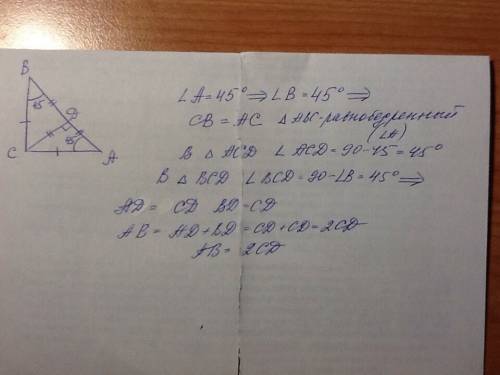 B
45
D
C
45
A
∠A = 45° ⇒ ∠B = 45° ⇒
CB = AC △ABC-равнобедренный
(∠A)
В △ ACD ∠ACD = 90-45 = 45°
В △ BCD ∠BCD = 90-∠B = 45° ⇒
AD = CD BD = CD
AB = AD + BD = CD + CD = 2CD
AB = 2CD